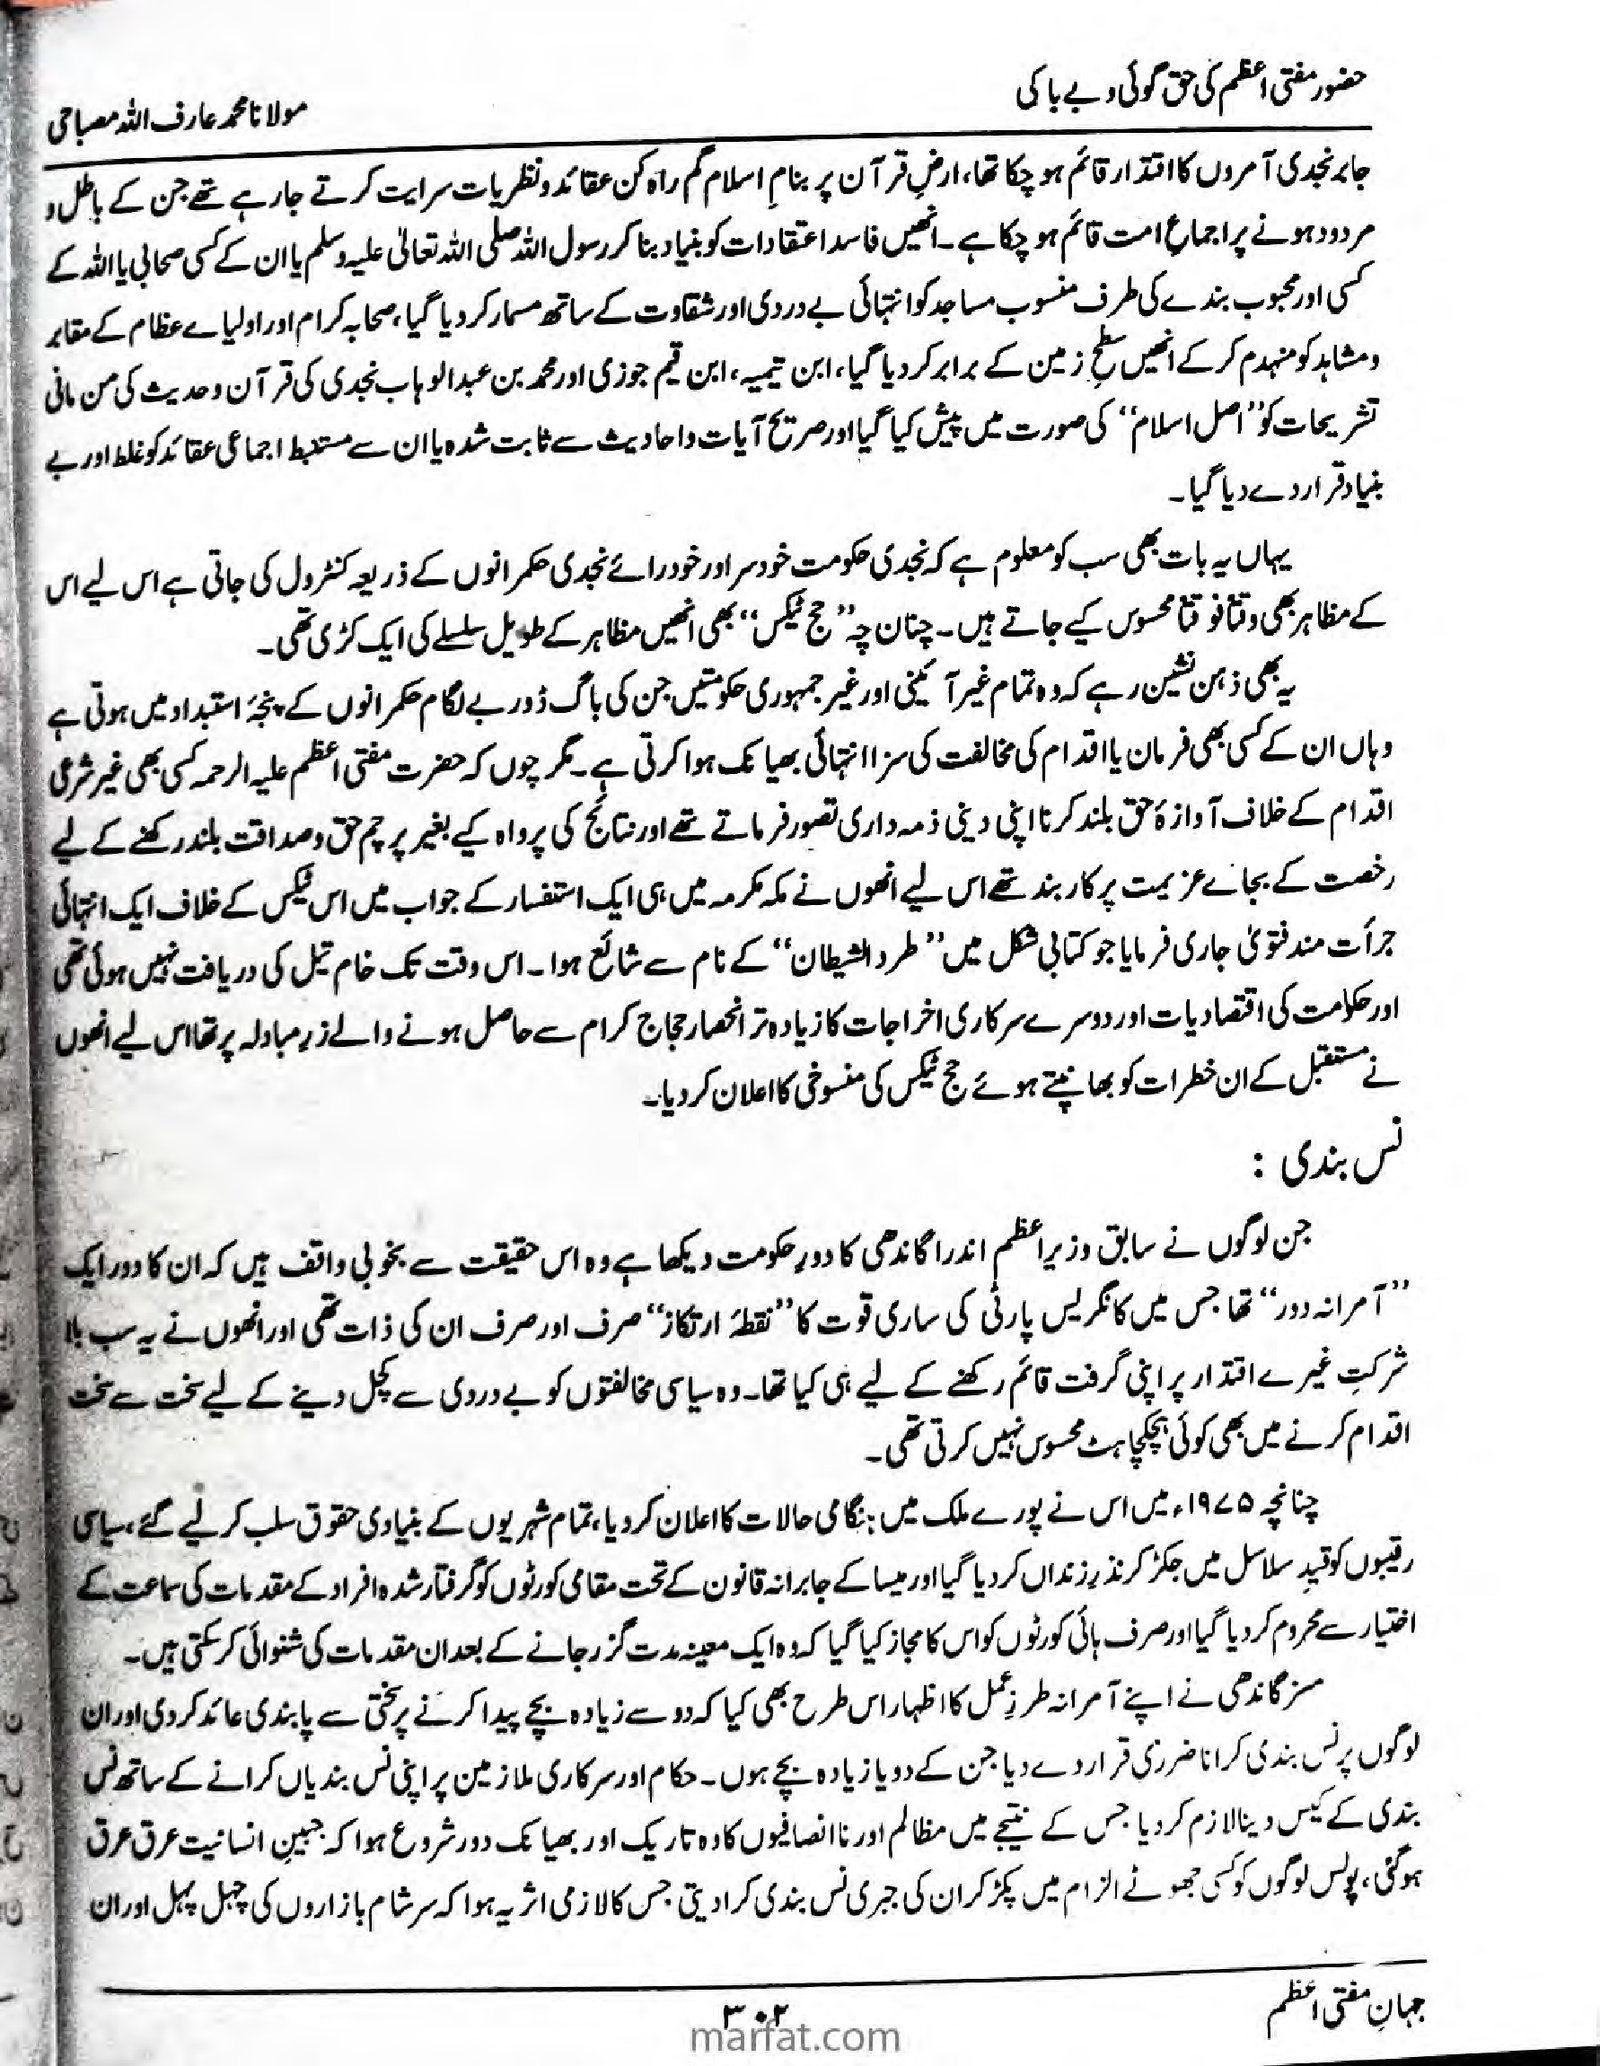 حضور مفتی اعظم کی حق گوئی و بے باکی
مولانا محمد عارف اللہ مصباحی
جابر نجدی آمروں کا اقتدار قائم ہو چکا تھا، ارضِ قرآن پر بنامِ اسلام گم راہ کن عقائد و نظریات سرایت کرتے جارہے تھے جن کے باطل و
مردود ہونے پر اجماعِ امت قائم ہو چکا ہے۔ انھیں فاسد اعتقادات کو بنیاد بنا کر رسول اللہ صلی اللہ تعالیٰ علیہ وسلم یا ان کے کسی صحابی یا اللہ کے
کسی اور محبوب بندے کی طرف منسوب مساجد کو انتہائی بے دردی اور شقاوت کے ساتھ مسمار کر دیا گیا، صحابہ کرام اور اولیاے عظام کے مقابر
و مشاہد کو منہدم کر کے انھیں سطحِ زمین کے برابر کر دیا گیا، ابن تیمیہ، ابن قیم جوزی اور محمد بن عبدالوہاب نجدی کی قرآن و حدیث کی من مانی
تشریحات کو ”اصل اسلام“ کی صورت میں پیش کیا گیا اور صریح آیات و احادیث سے ثابت شدہ یا ان سے مستنبط اجماعی عقائد کو غلط اور بے
بنیاد قرار دے دیا گیا۔
یہاں یہ بات بھی سب کو معلوم ہے کہ نجدی حکومت خود سر اور خود رائے نجدی حکمرانوں کے ذریعہ کنٹرول کی جاتی ہے اس لیے اس
کے مظاہر بھی وقتاً فوقتاً محسوس کیے جاتے ہیں۔ چنان چہ ”حج ٹیکس“ بھی انھیں مظاہر کے طویل سلسلے کی ایک کڑی تھی۔
یہ بھی ذہن نشین رہے کہ وہ تمام غیر آئینی اور غیر جمہوری حکومتیں جن کی باگ ڈور بے لگام حکمرانوں کے پنجۂ استبداد میں ہوتی ہے
وہاں ان کے کسی بھی فرمان یا اقدام کی مخالفت کی سزا انتہائی بھیانک ہوا کرتی ہے۔ مگر چوں کہ حضرت مفتی اعظم علیہ الرحمہ کسی بھی غیر شرعی
اقدام کے خلاف آوازۂ حق بلند کرنا اپنی دینی ذمہ داری تصور فرماتے تھے اور نتائج کی پرواہ کیے بغیر پرچم حق و صداقت بلند رکھنے کے لیے
رخصت کے بجاے عزیمت پر کار بند تھے اس لیے انھوں نے مکہ مکرمہ میں ہی ایک استفسار کے جواب میں اس ٹیکس کے خلاف ایک انتہائی
جرأت مند فتویٰ جاری فرمایا جو کتابی شکل میں ”طرد الشیطان“ کے نام سے شائع ہوا۔ اس وقت تک خام تیل کی دریافت نہیں ہوئی تھی
اور حکامت کی اقتصادیات اور دوسرے سرکاری اخراجات کا زیادہ تر انحصار حجاج کرام سے حاصل ہونے والے زرِ مبادلہ پر تھا اس لیے انھوں
نے مستقبل کے ان خطرات کو بھانپتے ہوئے حج ٹیکس کی منسوخی کا اعلان کر دیا۔
نس بندی :
جن لوگوں نے سابق وزیر اعظم اندرا گاندھی کا دورِ حکومت دیکھا ہے وہ اس حقیقت سے بخوبی واقف ہیں کہ ان کا دور ایک
”آمرانہ دور“ تھا جس میں کانگریس پارٹی کی ساری قوت کا ”نقطۂ ارتکاز“ صرف اور صرف ان کی ذات تھی اور انھوں نے یہ سب بلا
شرکتِ غیرے اقتدار پر اپنی گرفت قائم رکھنے کے لیے ہی کیا تھا۔ وہ سیاسی مخالفتوں کو بے دردی سے کچل دینے کے لیے سخت سے سخت
اقدام کرنے میں بھی کوئی ہچکچاہٹ محسوس نہیں کرتی تھی۔
چنانچہ ۱۹۷۵ء میں اس نے پورے ملک میں ہنگامی حالات کا اعلان کر دیا، تمام شہریوں کے بنیادی حقوق سلب کر لیے گئے، سیاسی
رقیبوں کو قیدِ سلاسل میں جکڑ کر نذرِ زنداں کر دیا گیا اور میسا کے جابرانہ قانون کے تحت مقامی کورٹوں کو گرفتار شدہ افراد کے مقدمات کی سماعت کے
اختیار سے محروم کر دیا گیا اور صرف ہائی کورٹوں کو اس کا مجاز کیا گیا کہ وہ ایک معینہ مدت گزر جانے کے بعد ان مقدمات کی شنوائی کر سکتی ہیں۔
مسز گاندھی نے اپنے آمرانہ طرزِ عمل کا اظہار اس طرح بھی کیا کہ دو سے زیادہ بچے پیدا کرنے پر سختی سے پابندی عائد کر دی اور ان
لوگوں پر نس بندی کرانا ضرری قرار دے دیا جن کے دو یا زیادہ بچے ہوں۔ حکام اور سرکاری ملازمین پر اپنی نس بندیاں کرانے کے ساتھ نس
بندی کے کیس دینا لازم کر دیا جس کے نتیجے میں مظالم اور ناانصافیوں کا وہ تاریک اور بھیانک دور شروع ہوا کہ جبینِ انسانیت عرق عرق
ہوگئی، پولس لوگوں کو کسی جھوٹے الزام میں پکڑ کر ان کی جبری نس بندی کرا دیتی جس کا لازمی اثر یہ ہوا کہ سرِ شام بازاروں کی چہل پہل اور ان
جہانِ مفتی اعظم
۳۰۲
marfat.com